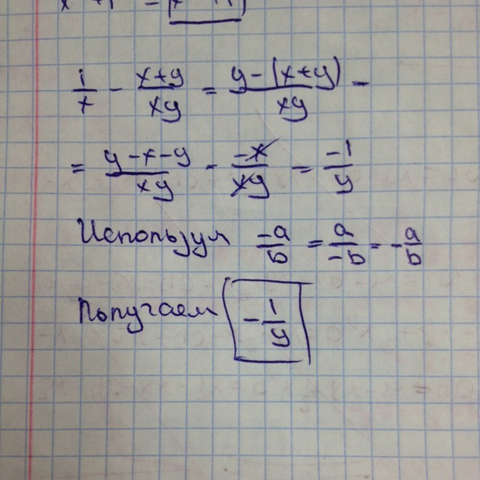 1/x - (x+y)/(xy) = (y-(x+y))/(xy) -
= (y-x-y)/(xy) - (-x)/(xy) = (-1)/y
Используя (-a)/b = a/(-b) = -a/b
Получаем -1/y